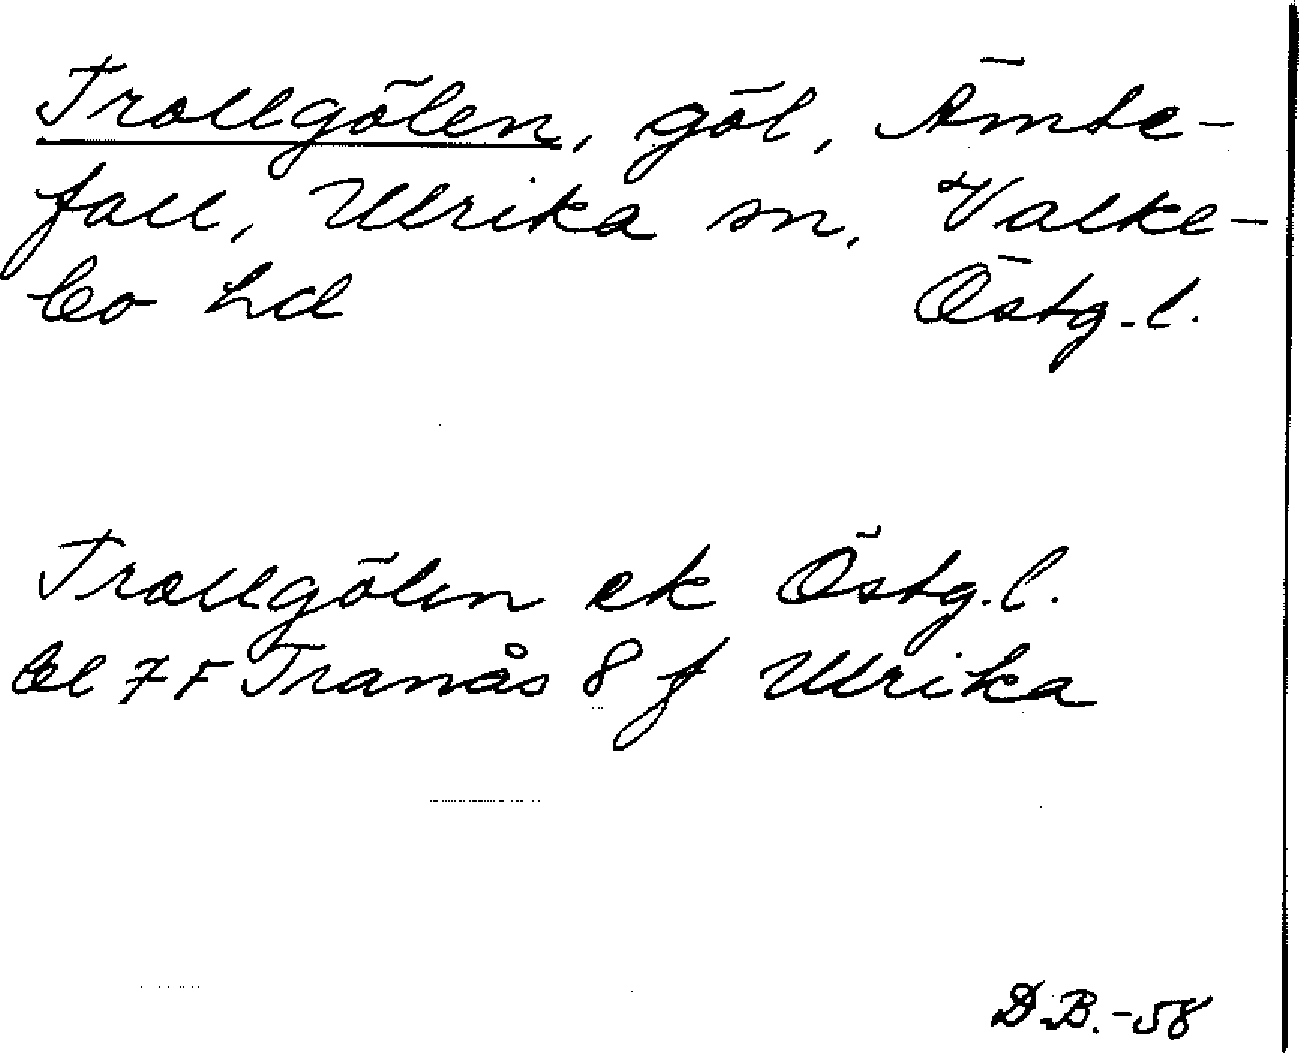 Trollgölen, göl, Ämte-
fall, Ulrika sn, Valke-
bo hd Östg.l.
Trollgölen ek Östg.l.
bl 7 F Tranås 8 f Ulrika
D.B.-58